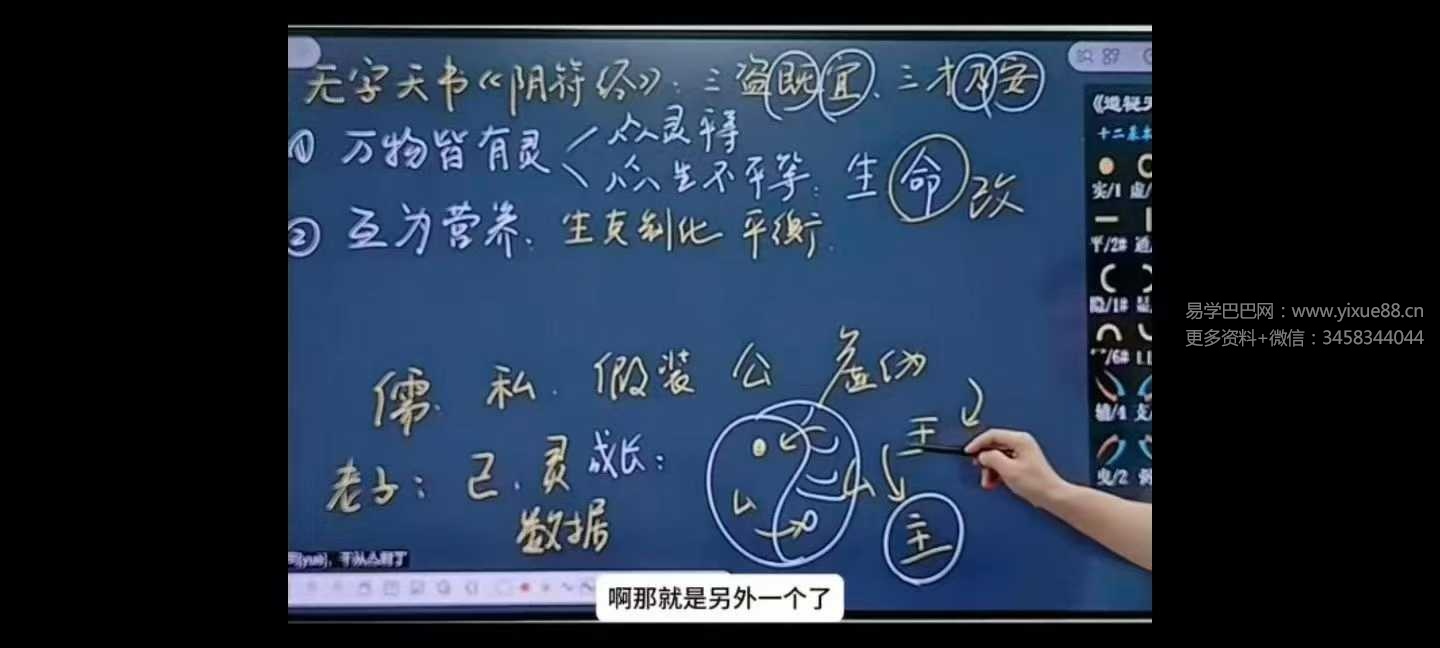 无字天书《阴符经》：三盗既宜、三才乃安
① 万物皆有灵
众灵平等
众生不平等：生命改
② 互为营养、生克制化 平衡
儒 私 假装 公 虚伪
老子：己，灵成长：
数据
王
主
十二基本
实/1
平/2# 通/
隐/1#
/6#
辅/4 支/
曳/2
易学巴巴网：www.yixue88.cn
更多资料+微信：3458344044
啊那就是另外一个了